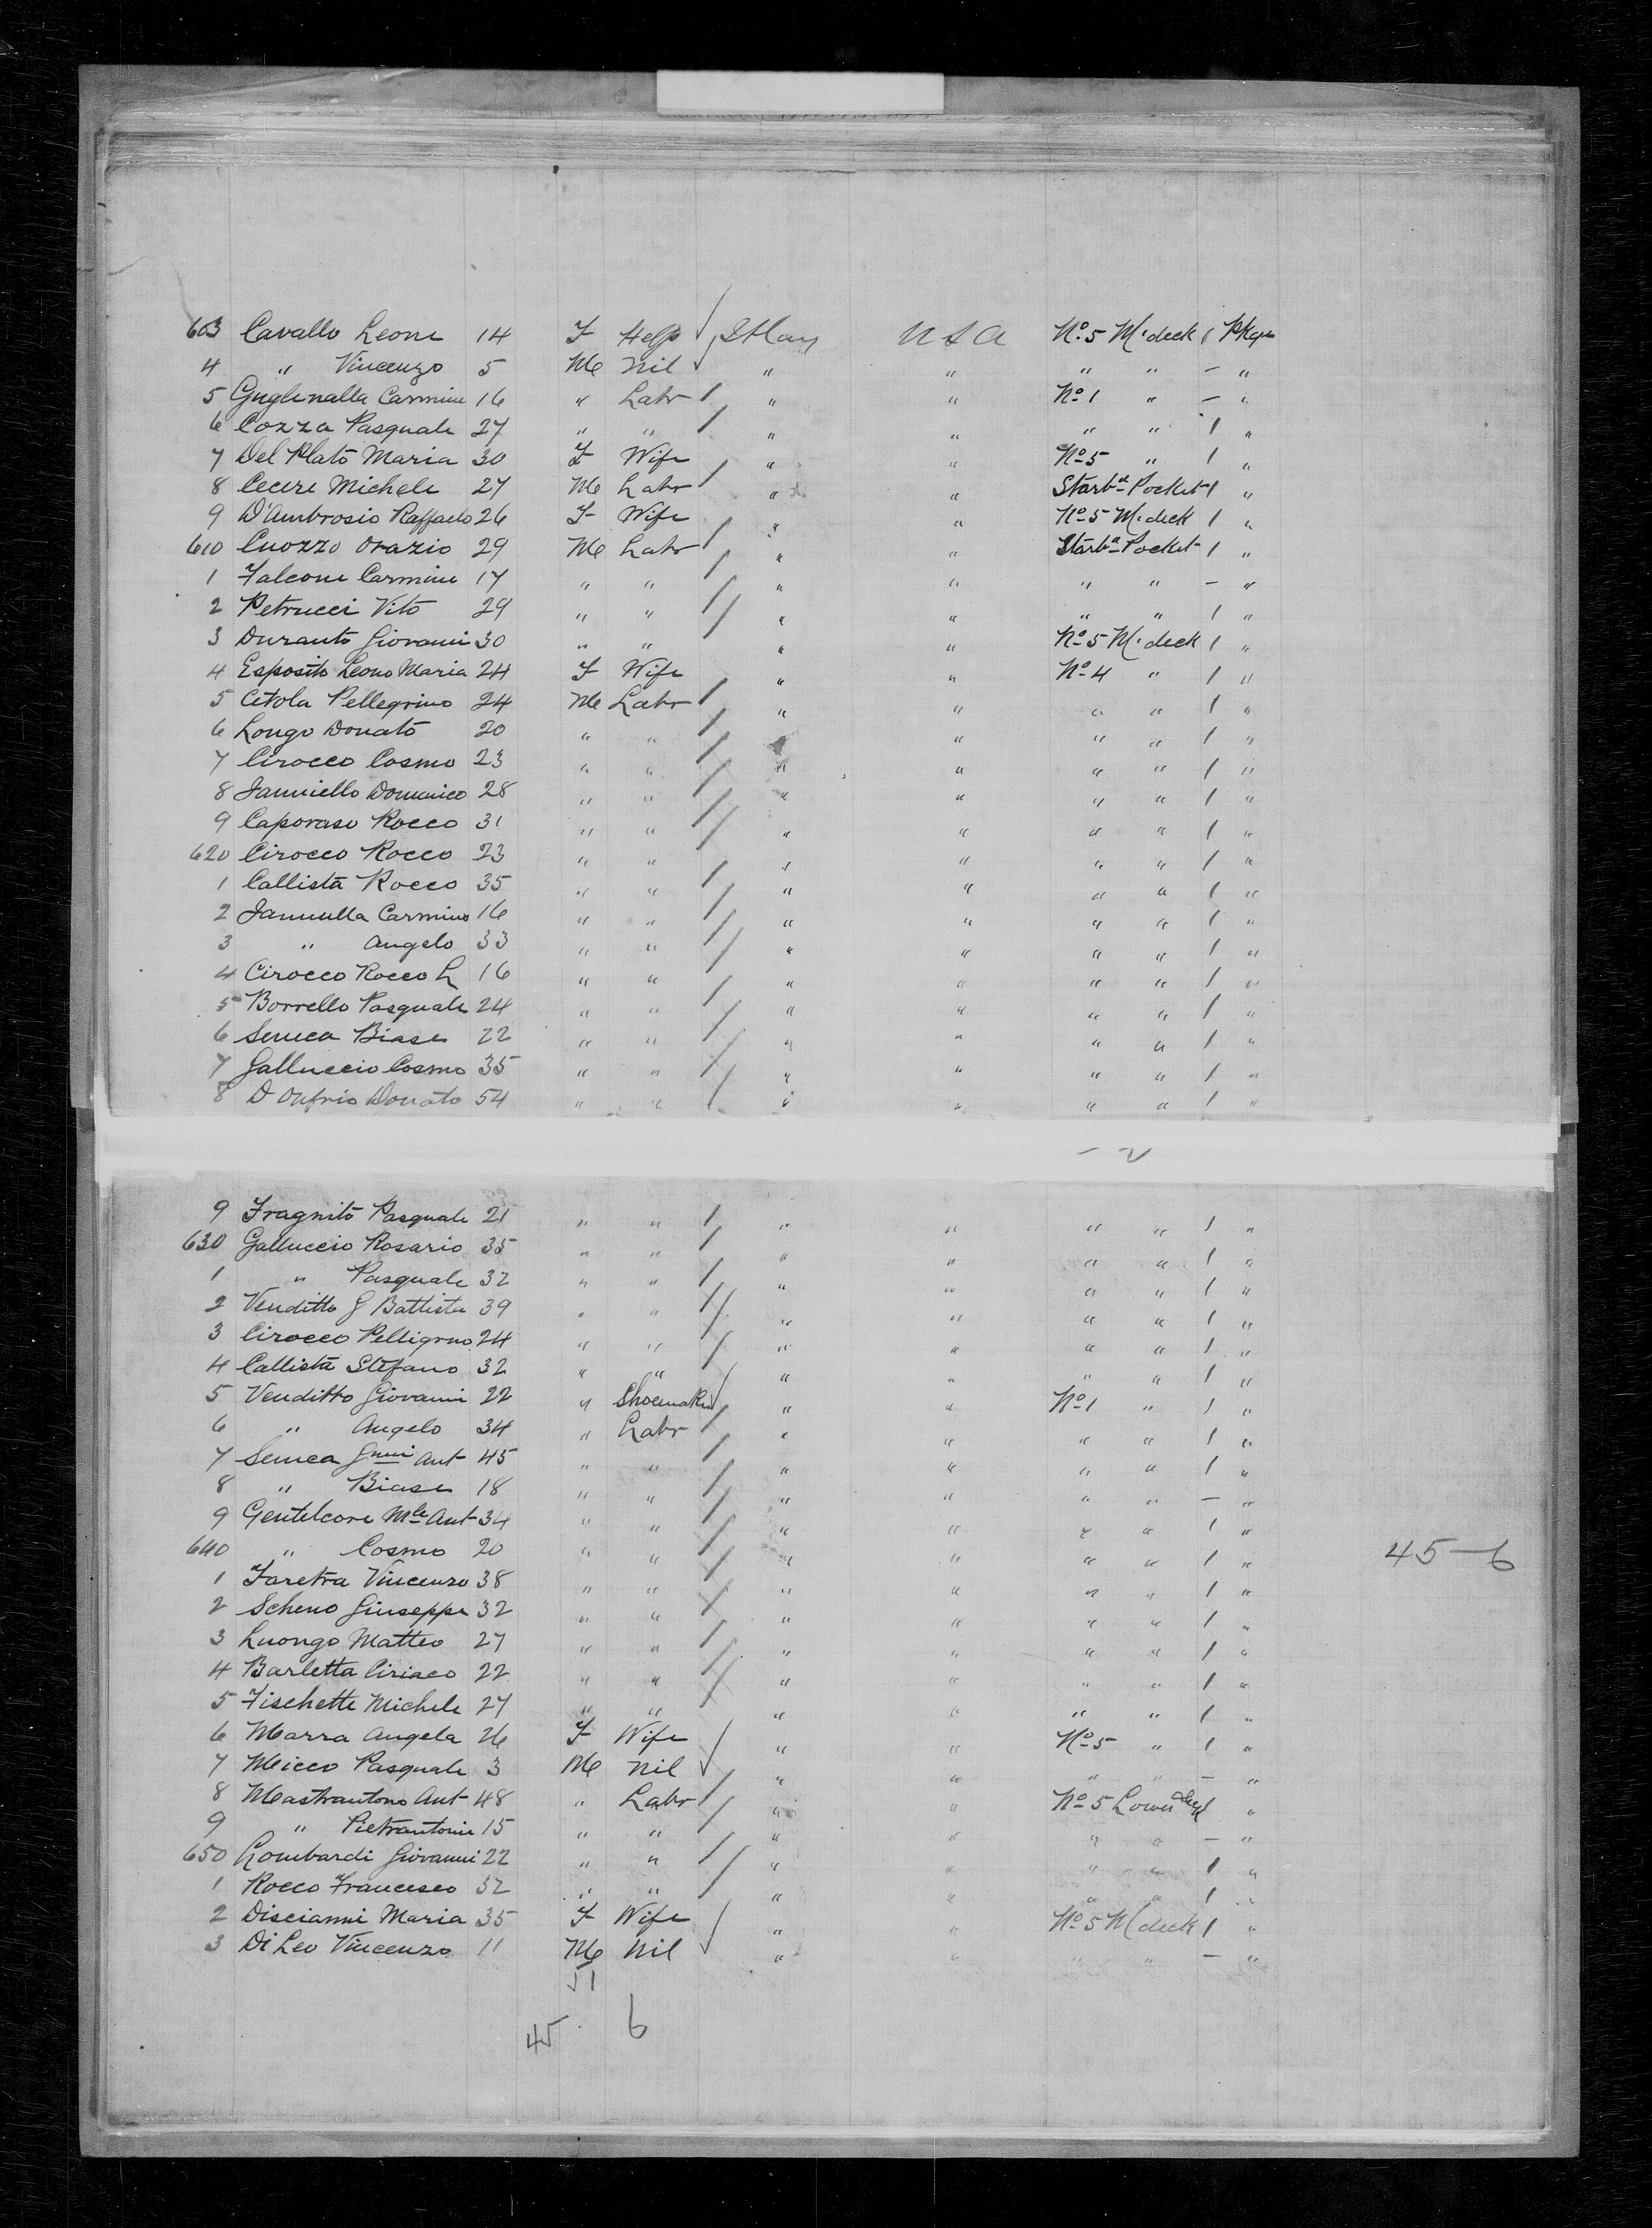 603 Cavallo Leone 14 F Help Italy U S A No. 5 M. deck 1 Pkge
4 " Vincenzo 5 Me Nil " " " " - "
5 Guglenalla Carmine 16 " Labr " " No 1 " - "
6 Cozza Pasquale 27 " " " " " " 1 "
7 Del Plato Maria 30 F Wife " " No 5 " 1 "
8 Cecere Michele 27 Me Labr " " Starbd Pocket 1 "
9 D'Ambrosio Raffaelo 26 F Wife " " No 5 M. deck 1 "
610 Cuozzo Orazio 29 Me Labr " " Starbd Pocket 1 "
1 Falcone Carmine 17 " " " " " " - "
2 Petrucci Vito 29 " " " " " " 1 "
3 Duranto Giovanni 30 " " " " No 5 M. deck 1 "
4 Esposito Leono Maria 24 F Wife " " No 4 " 1 "
5 Cetola Pellegrino 24 Me Labr " " " " 1 "
6 Longo Donato 20 " " " " " 1 "
7 Cirocco Cosmo 23 " " " " " " 1 "
8 Janniello Domenico 28 " " " " " " 1 "
9 Caporaso Rocco 31 " " " " " " 1 "
620 Cirocco Rocco 23 " " " " " " 1 "
1 Callista Rocco 35 " " " " " " 1 "
2 Jannulla Carmino 16 " " " " " " 1 "
3 " Angelo 33 " " " " " " 1 "
4 Cirocco Rocco L 16 " " " " " " 1 "
5 Borrello Pasquale 24 " " " " " " 1 "
6 Seneca Biase 22 " " " " " " 1 "
7 Galluccio Cosmo 35 " " " " " " 1 "
8 D Onfrio Donato 54 " " " " " " 1 "
9 Fragnito Pasquale 21 " " " " " " 1 "
630 Galluccio Rosario 35 " " " " " " 1 "
1 " Pasquale 32 " " " " " " 1 "
2 Venditto G Battista 39 " " " " " " 1 "
3 Cirocco Pelligrno 24 " " " " " " 1 "
4 Callista Stefano 32 " " " " " " 1 "
5 Venditto Giovanni 22 " Shoemaker " " No 1 " 1 "
6 " Angelo 34 " Labr " " " " 1 "
7 Senea Gnni Ant 45 " " " " " " 1 "
8 " Biase 18 " " " " " " - "
9 Gentelcore Mle Ant 34 " " " " " " 1 "
640 " Cosmo 20 " " " " " " 1 " 45-6
1 Faretra Vincenzo 38 " " " " " " 1 "
2 Scheno Giuseppe 32 " " " " " " 1 "
3 Luongo Matteo 27 " " " " " " 1 "
4 Barletta Ciriaco 22 " " " " " " 1 "
5 Fischette Michele 27 " " " " " " 1 "
6 Marra Angela 26 F Wife " " No 5 " 1 "
7 Micco Pasquale 3 Me Nil " " " " - "
8 Mastrantono Ant 48 " Labr " " No 5 Lower deck 1 "
9 " Pietrantonie 15 " " " " " " - "
650 Lombardi Giovanni 22 " " " " " " 1 "
1 Rocco Francesco 32 " " " " " " 1 "
2 Discianni Maria 35 F Wife " " No 5 M deck 1 "
3 Di Leo Vincenzo 11 Me Nil " " " " - "
51
45 6